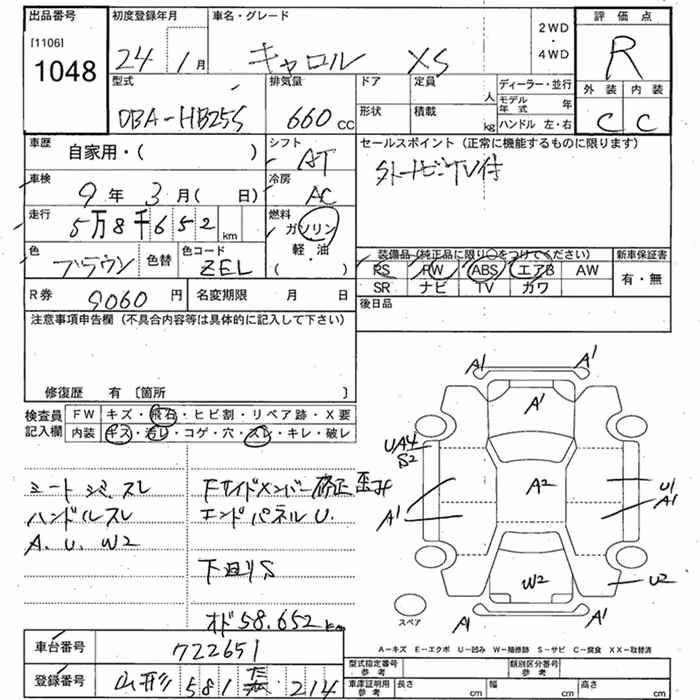 出品番号 初度登録年月 車名・グレード 2WD・4WD 評価点
[1106] 1048 24年1月 キャロル XS R
型式 排気量 ドア 定員 人 ディーラー・並行 外装 内装
DBA-HB25S 660cc 形状 積載 kg モデル年式 年 ハンドル 左・右 C C
車歴 自家用・( ) シフト AT セールスポイント (正常に機能するものに限ります)
車検 9年3月( 日) 冷房 AC
走行 5万8千652km 燃料 ガソリン 軽・油 ( )
色 ブラウン 色替 色コード ZEL
装備品 (純正品に限り○をつけてください) 新車保証書
PS PW ABS エアB AW 有・無
SR ナビ TV カワ
R券 9060円 名変期限 月 日 後日品
注意事項申告欄 (不具合内容等は具体的に記入して下さい)
修復歴 有 〔箇所 〕
検査員記入欄 FW キズ・飛石・ヒビ割・リペア跡・X要
内装 キズ・汚レ・コゲ・穴・スレ・キレ・破レ
シートシミ、スレ
ハンドルスレ
A、U、W2
下サイドメンバー修正歪み
エンドパネルU.
下廻りS
オド58.652km
A1 A1
A1
UA4
S2
A2
U1
A1
A1
W2
U2
A1 A1
スペア
A-キズ E-エクボ U-凹み W-補修跡 S-サビ C-腐食 XX-取替済
車台番号 722651
登録番号 山形 581 214
型式指定番号 参考 類別区分番号 参考
車庫証明用 参考 長さ cm 幅 cm 高さ cm